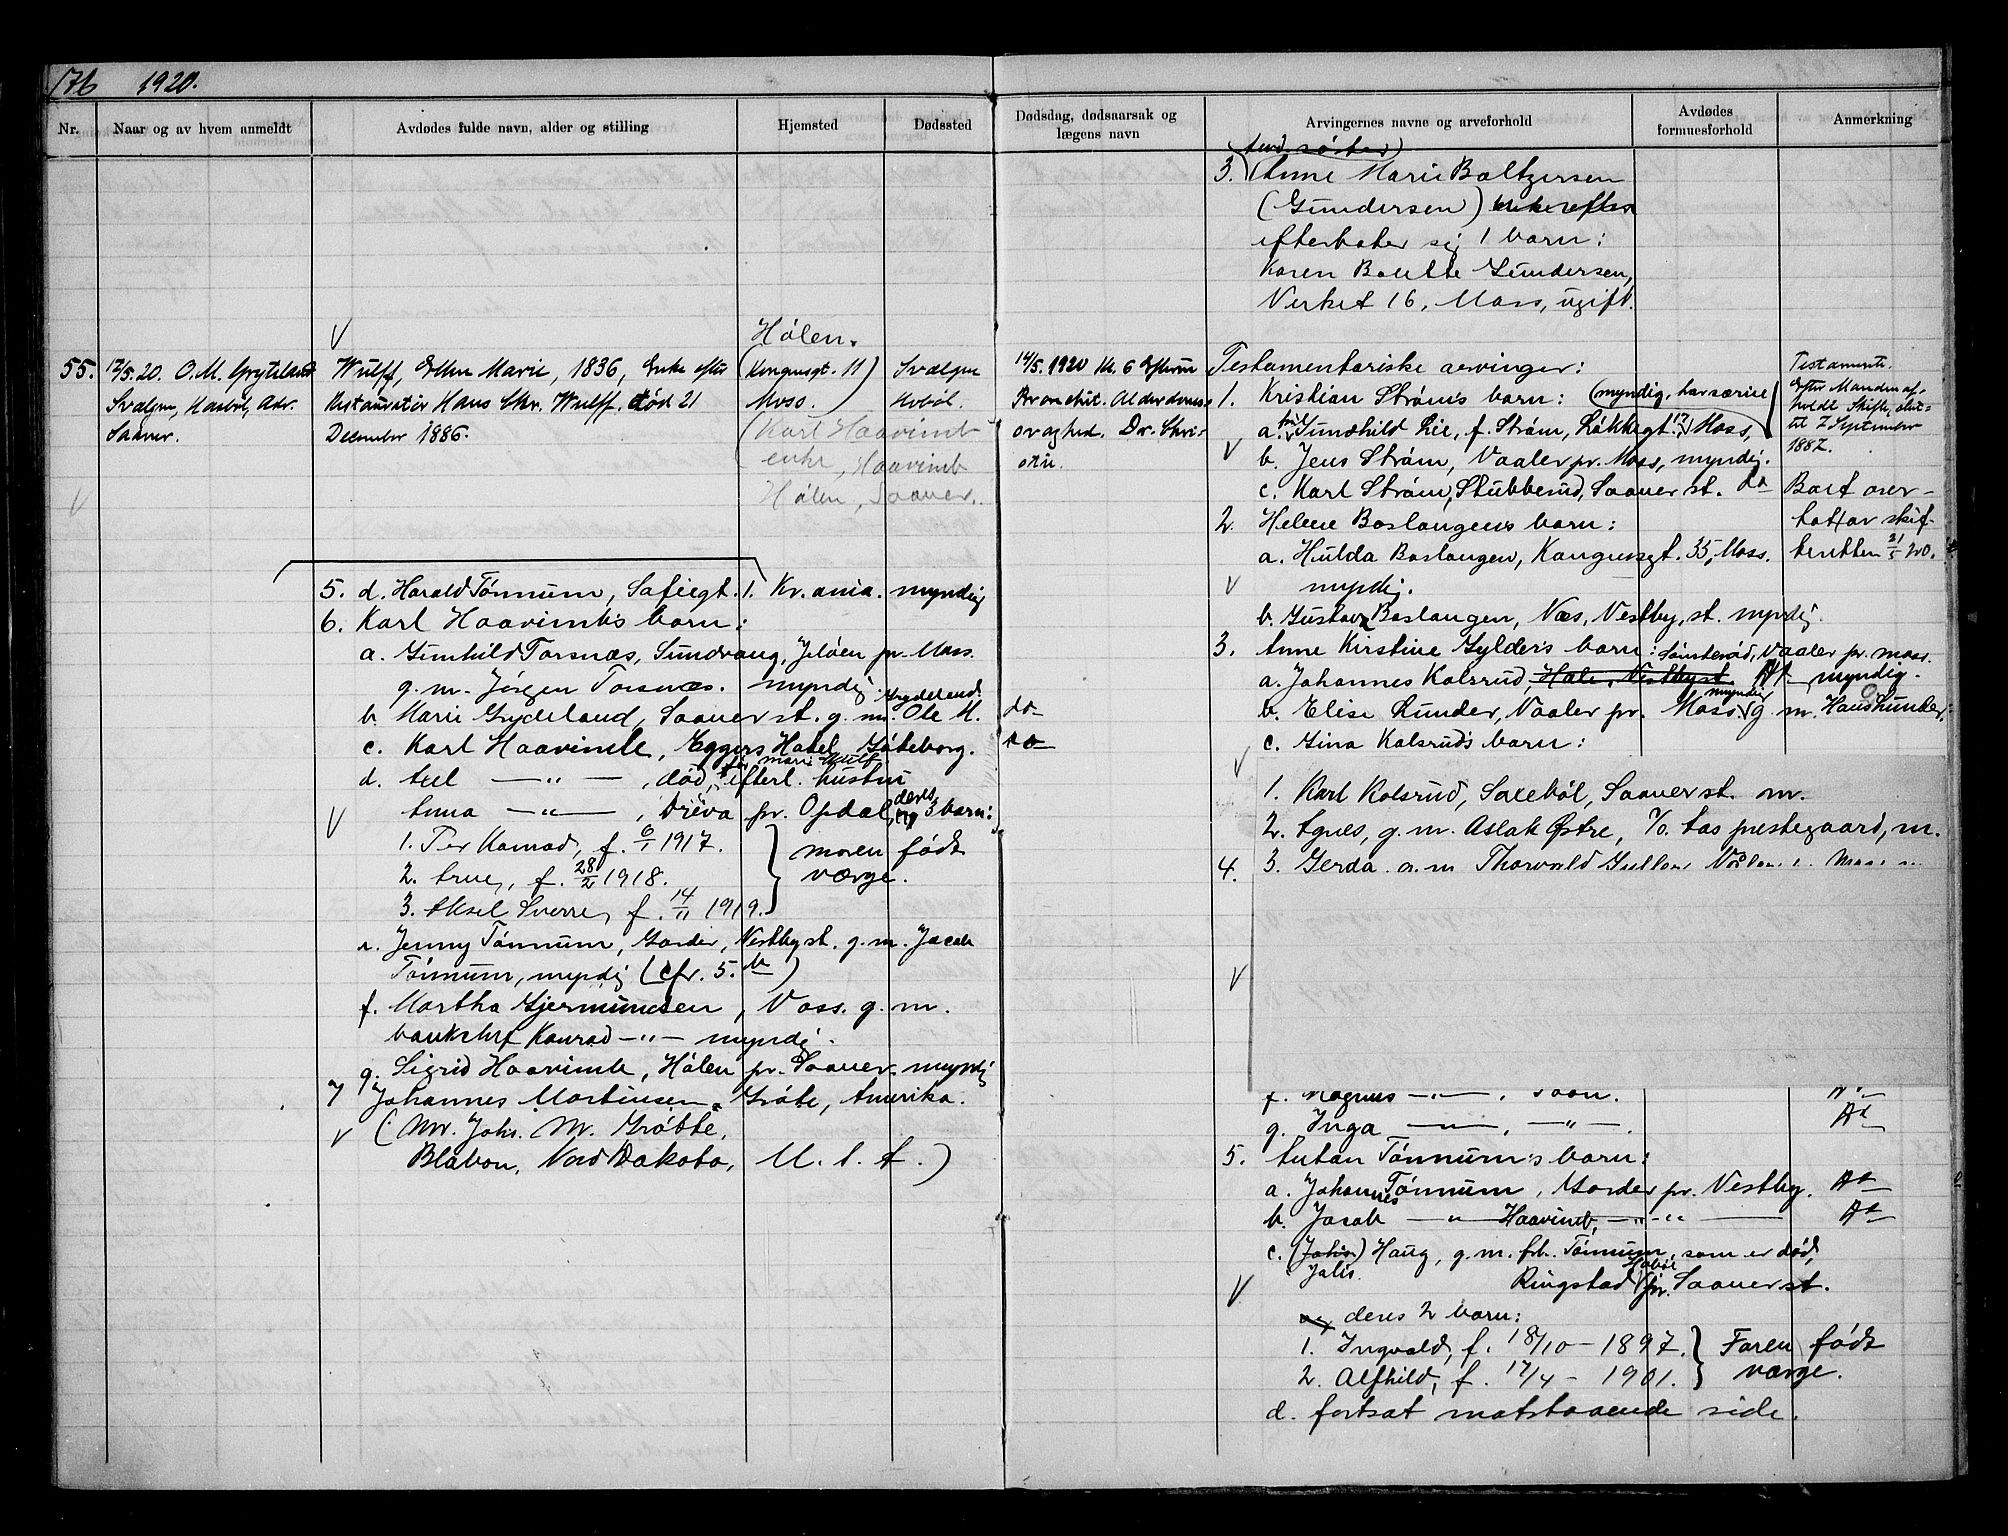 176 1920.
Nr.
Naar og av hvem anmeldt
Avdødes fulde navn, alder og stilling
Hjemsted
Dødssted
Dødsdag, dødsaarsak og
lægens navn
Arvingernes navne og arveforhold
Avdødes
formuesforhold
Anmerkning
55. 17/5. 20. O. M. Grydeland
Svælgen, Haabøl, Adr.
Saaner.
Wulff, Ellen Marie, 1836, Enke efter
Restauratør Hans Chr. Wulff. død 21
December 1886.
Hølen.
(Kongensgt. 11)
Moss.)
(Karl Haavimb
enke, Haavimb
Hølen, Saaner.
Svælgen
Hobøl.
5. d. Harald Tønnum, Sofiegt. 1. Kr.ania. myndig
6. Karl Haavimb's barn:
a. Gunhild Torsnæs, Sundvang, Jeløen pr. Moss.
g. m. Jørgen Torsnæs. myndig
b. Marie Grydeland, Saaner st. g. m. Ole M. Grydeland. do
c. Karl Haavimb, Eggers Hotel, Gøteborg. do
d. Axel —"— , død, efterl. hustru
Anna —"— , Driva pr. Opdal, og deres 3 barn:
1. Per Konrad, f. 6/1 1917.
2. Arne, f. 28/2 1918.
3. Aksel Sverre, f. 14/11 1919.
moren født
værge.
e. Jenny Tønnum, Garder, Vestby st. g. m. Jacob
Tønnum, myndig (cfr. 5. b)
f. Martha Gjermundsen, Voss. g. m.
bankshef Konrad —"— myndig.
g. Sigrid Haavimb, Hølen pr. Saaner. myndig
7 Johannes Martinsen Grøte, Amerika.
(Mr. Johs. M. Grøtte,
Blabon, Nord Dakota, U. S. A.)
14/5. 1920 kl. 6 Efterm
Bronchit. Alderdoms-
svaghed. Dr. Skri-
avd. søster
3. Anne Marie Baltzersen
(Gundersen)
efterlater sig 1 barn:
Karen Bolette Gundersen,
Verket 16, Moss, ugift.
Testamentariske arvinger:
1. Kristian Strøms barn: (myndig, har særeie
a. fru Gunhild Lie, f. Strøm, Løkkegt. 17, Moss,
b. Jens Strøm, Vaaler pr. Moss, myndig.
c. Karl Strøm, Stubberud, Saaner st. do
2. Helene Boslangens barn:
a. Hulda Boslangen, Kongensgt. 35, Moss.
myndig.
b. Gustav Boslangen, Næs, Vestby st. myndig.
3. Anne Kirstine Gylders barn:
a. Johannes Kolsrud, Hole, Vestby st. Sønsterød, Vaaler pr. Moss. myndig.
b. Elise Lunder, Vaaler pr. Moss, myndig g. m. Hans Lunder.
c. Gina Kolsrud's barn:
1. Karl Kolsrud, Saxebøl, Saaner st. m.
2. Agnes, g. m. Aslak Østre, p/o. Aas prestegaard, m.
4. 3. Gerda g. m Thorvald
f. Magnus —"— , Saan.
g. Inga —"— , —"— . do
5. Anton Tønnum's barn:
a. Johannes Tønnum, Garder pr. Vestby. do
b. Jacob —"— Haavimb, —"— do
c. (Johs.) Haug, g. m. frk. Tønnum, som er død,
Julis. Ringstad, Hobøl pr. Saaner st.
og deres 2 barn:
1. Ingvald, f. 18/10 - 1897.
2. Alfhild, f. 17/4 - 1901.
Faren født
værge.
d. fortsat motstaaende side.
Testamente.
Efter Manden af-
holdt Skifte, slut-
tet 7 September
1887.
Boet over-
tat av skif-
teretten 21/5 20.